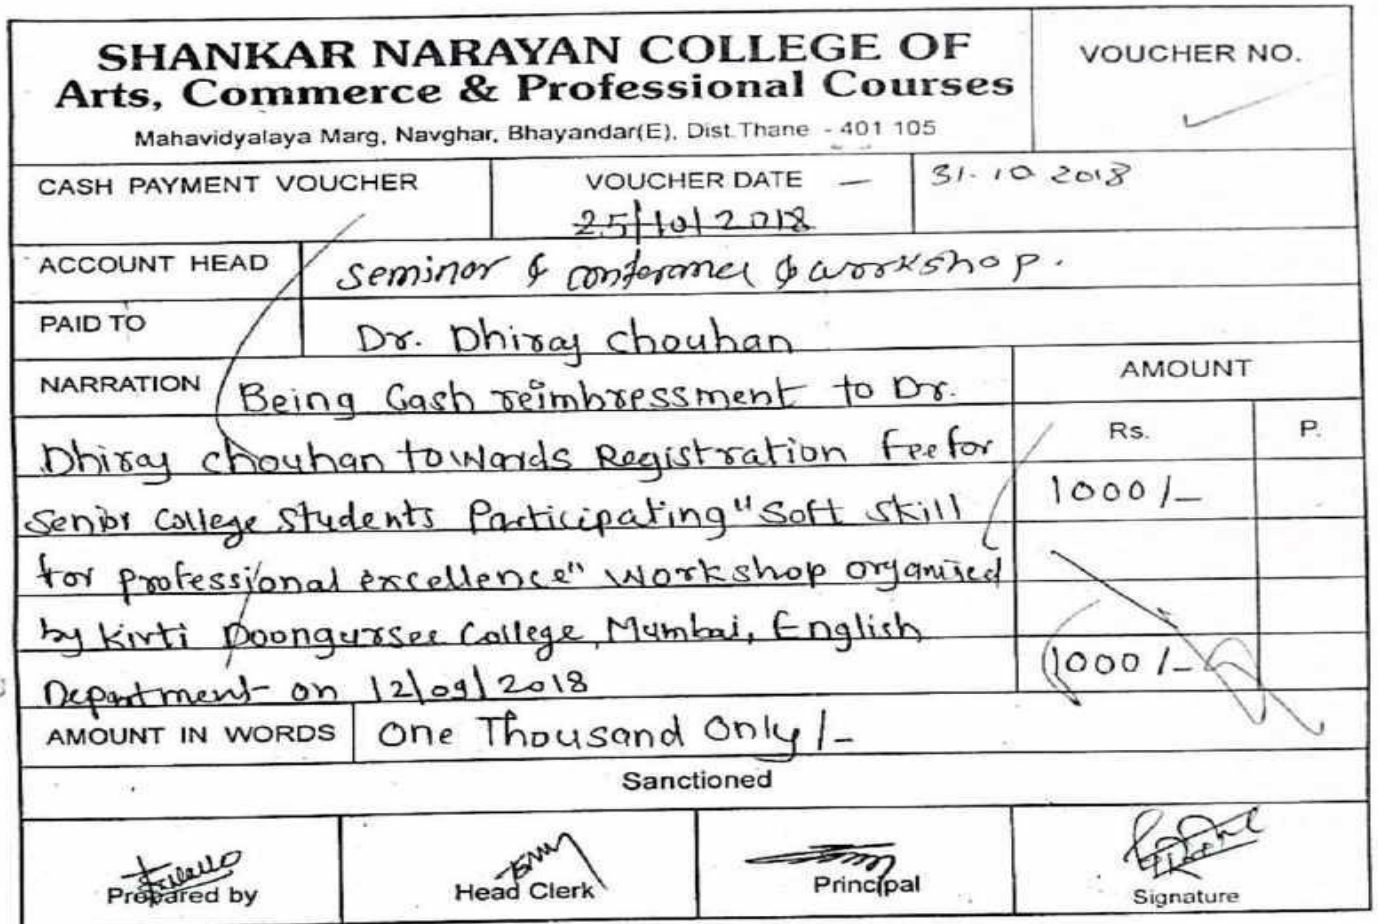 SHANKAR NARAYAN COLLEGE OF
Arts, Commerce & Professional Courses
Mahavidyalaya Marg, Navghar, Bhayandar(E), Dist.Thane - 401 105
VOUCHER NO.
CASH PAYMENT VOUCHER
VOUCHER DATE —
25/10/2018
31.10.2018
ACCOUNT HEAD
seminar & conference & workshop.
PAID TO
Dr. Dhiraj chouhan
NARRATION
AMOUNT
Being Cash reimbressment to Dr.
Rs.
P.
Dhiraj chouhan towards Registration Fee for
Senior College Students Participating "Soft skill
1000/-
for professional excellence" Workshop organised
by Kirti Doongursee College, Mumbai, English
Department on 12/09/2018
1000/-
AMOUNT IN WORDS
One Thousand Only/-
Sanctioned
Prepared by
Head Clerk
Principal
Signature